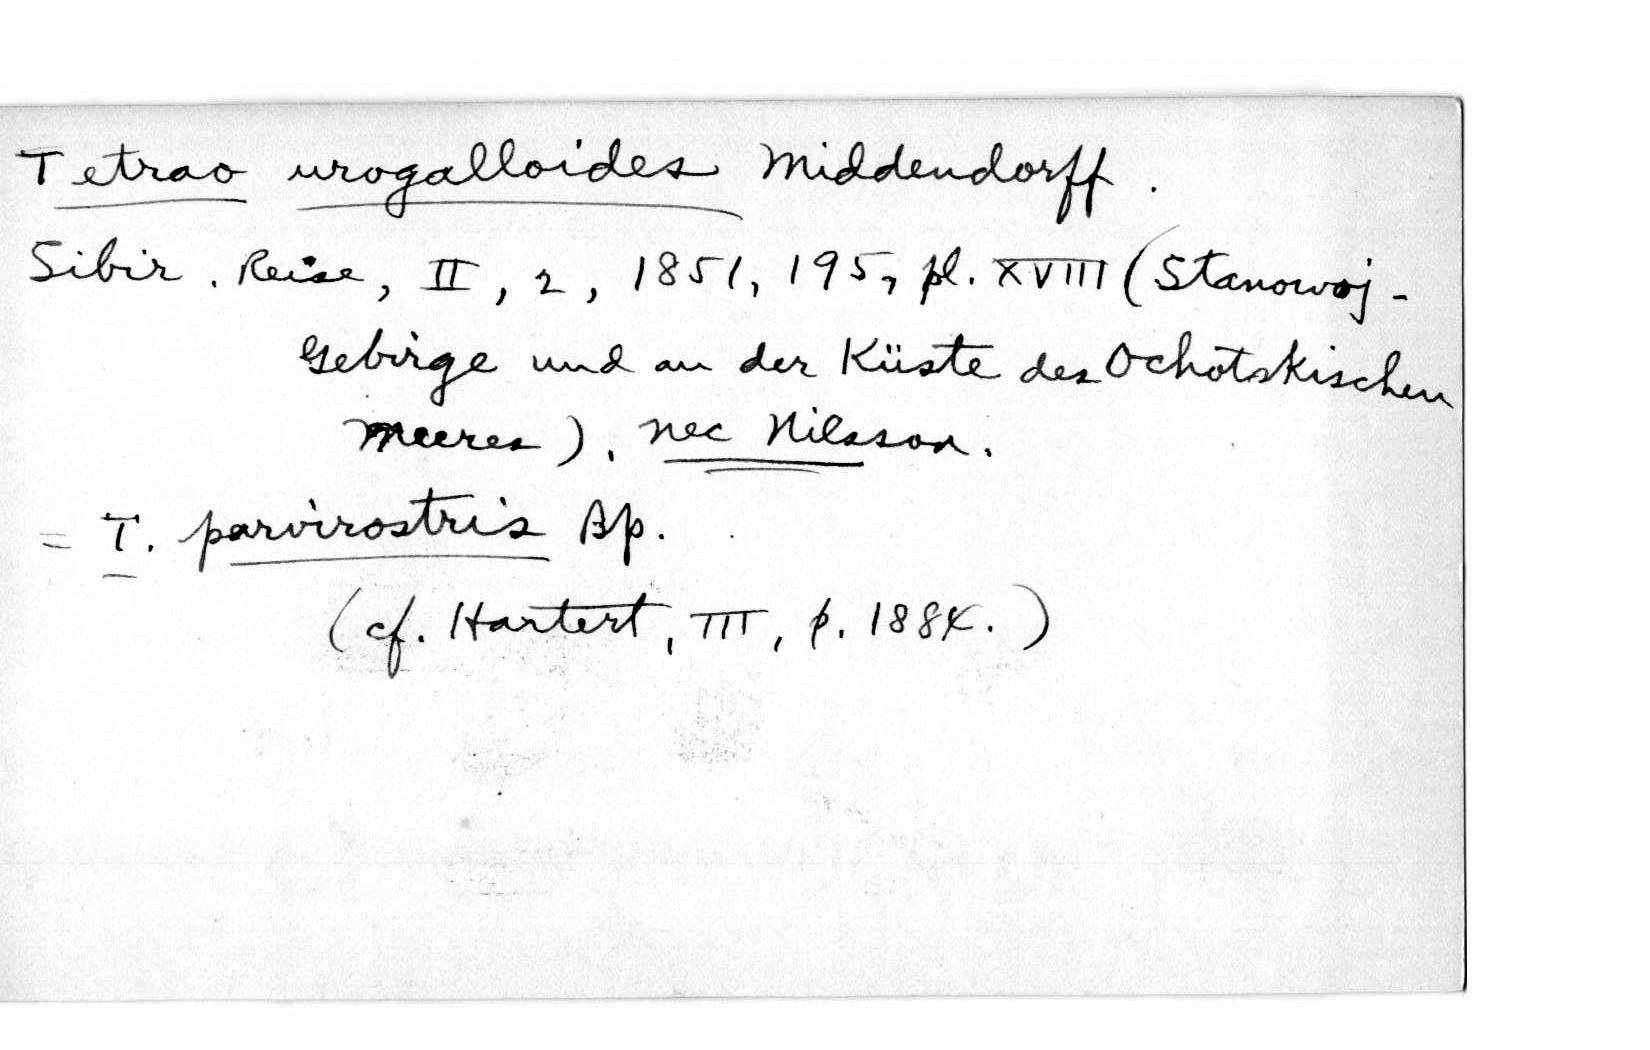 Tetrao urogalloides Middendorff.
Sibir. Reise, II, 2, 1851, 195, pl. XVIII (Stanowoj-
Gebirge und an der Küste des Ochotskischen
Meeres), nec Nilsson.
= T. parvirostris Bp.
(cf. Hartert, III, p. 1884.)